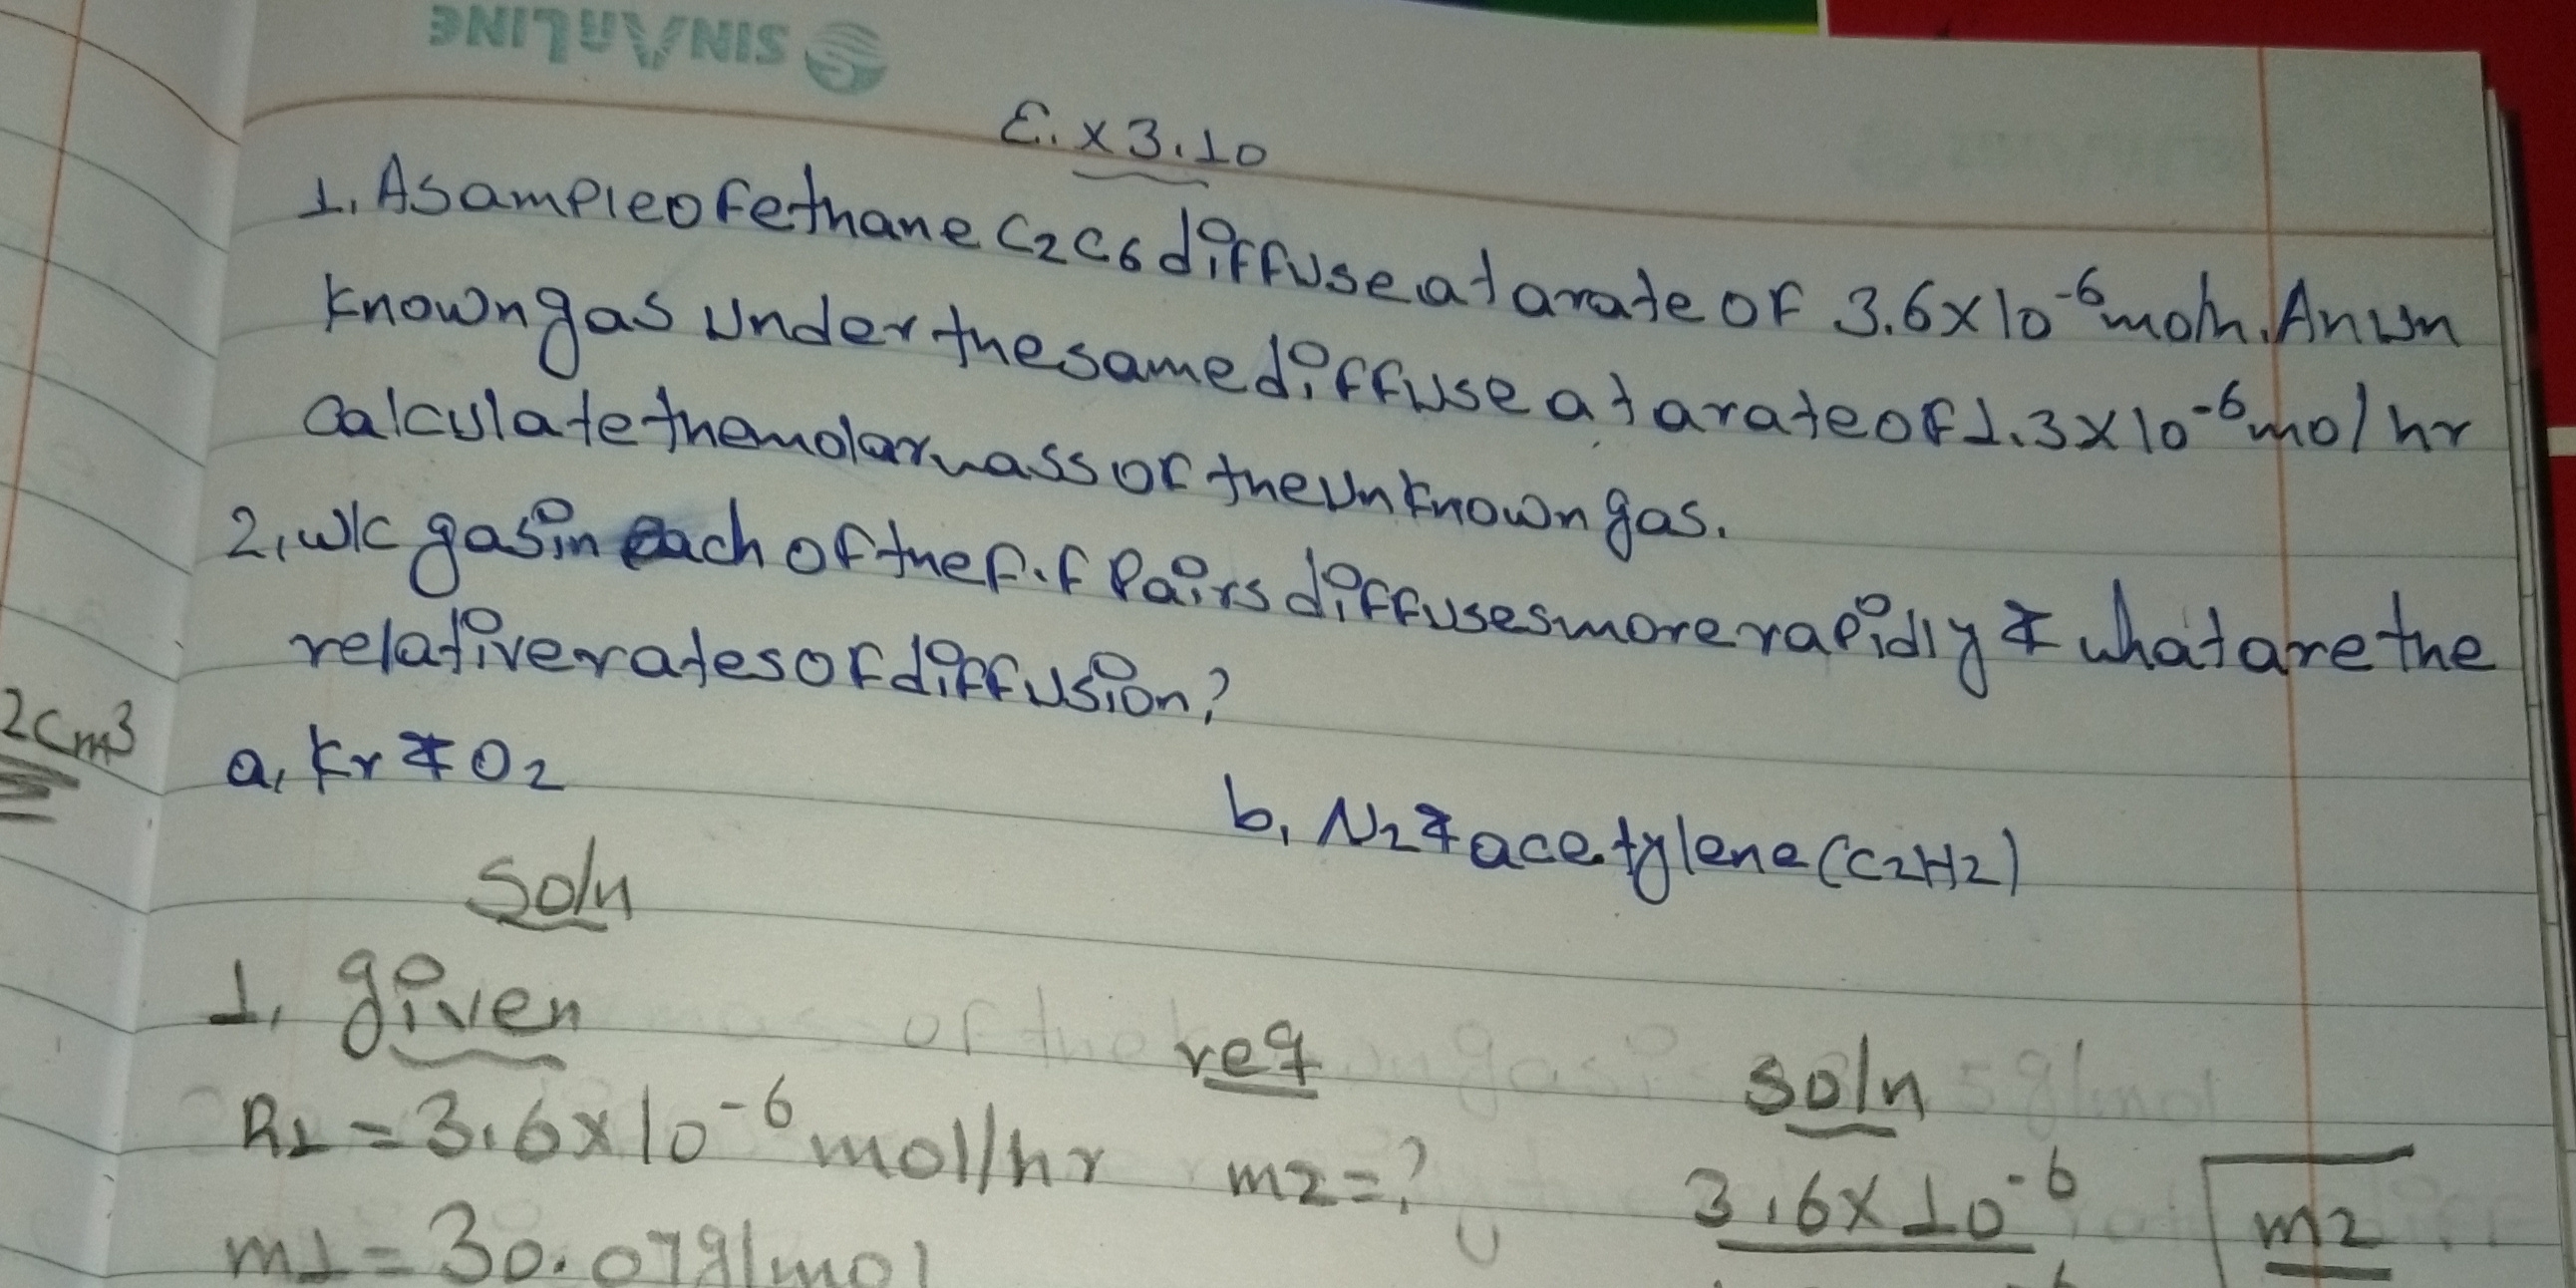 SINARLINE
E.x 3.10
1. A sample of ethane C2C6 diffuse at a rate of 3.6x10-6 mol/h. An un
known gas under the same diffuse at a rate of 1.3x10-6 mol/hr
calculate the molar mass of the unknown gas.
2, w/c gas in each of the f.f Pairs diffuses more rapidly & what are the
relative rates of diffusion?
2cm3
a, Kr & O2
b, N2 & acetylene (C2H2)
Soln
1, given
req
soln
R1 = 3.6x10-6 mol/hr
m2=?
3.6x10-6
m2
m1 = 30.07g/mol